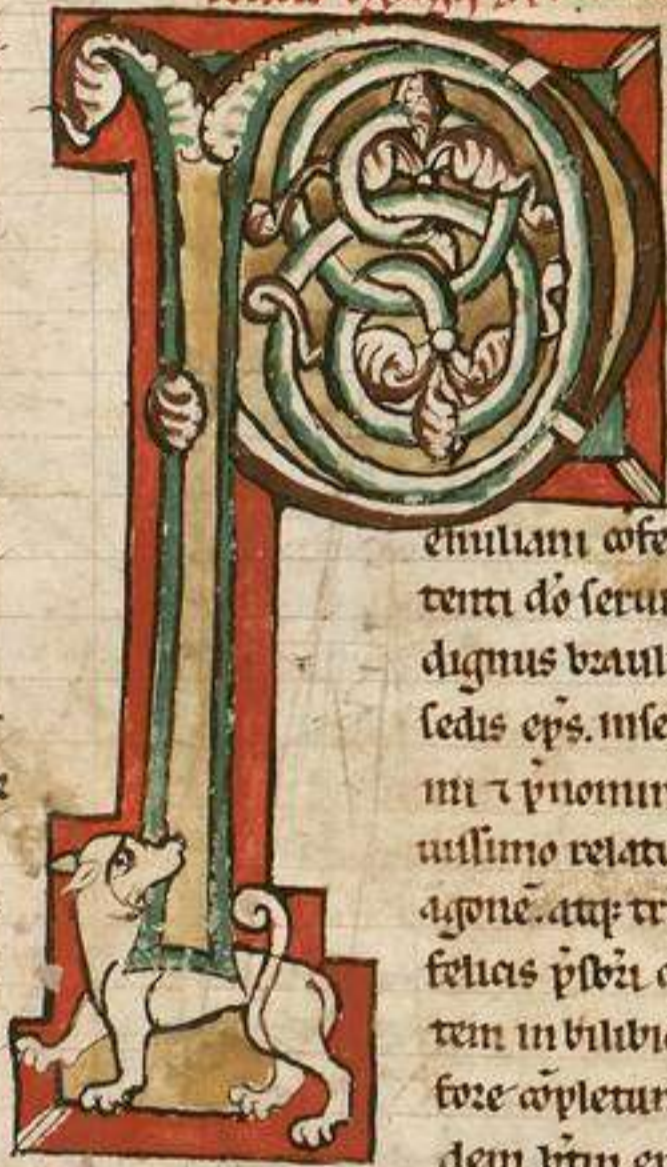 P
emiliani cōfe
tenti dō seruu
dignus braul
sedis ep̄s. inse
mi ⁊ p̄nomin
uissimo relatu
agonē. atq; tr
felicis p̄sbr̄i
tem in bilibi
fore cōpletum
dem